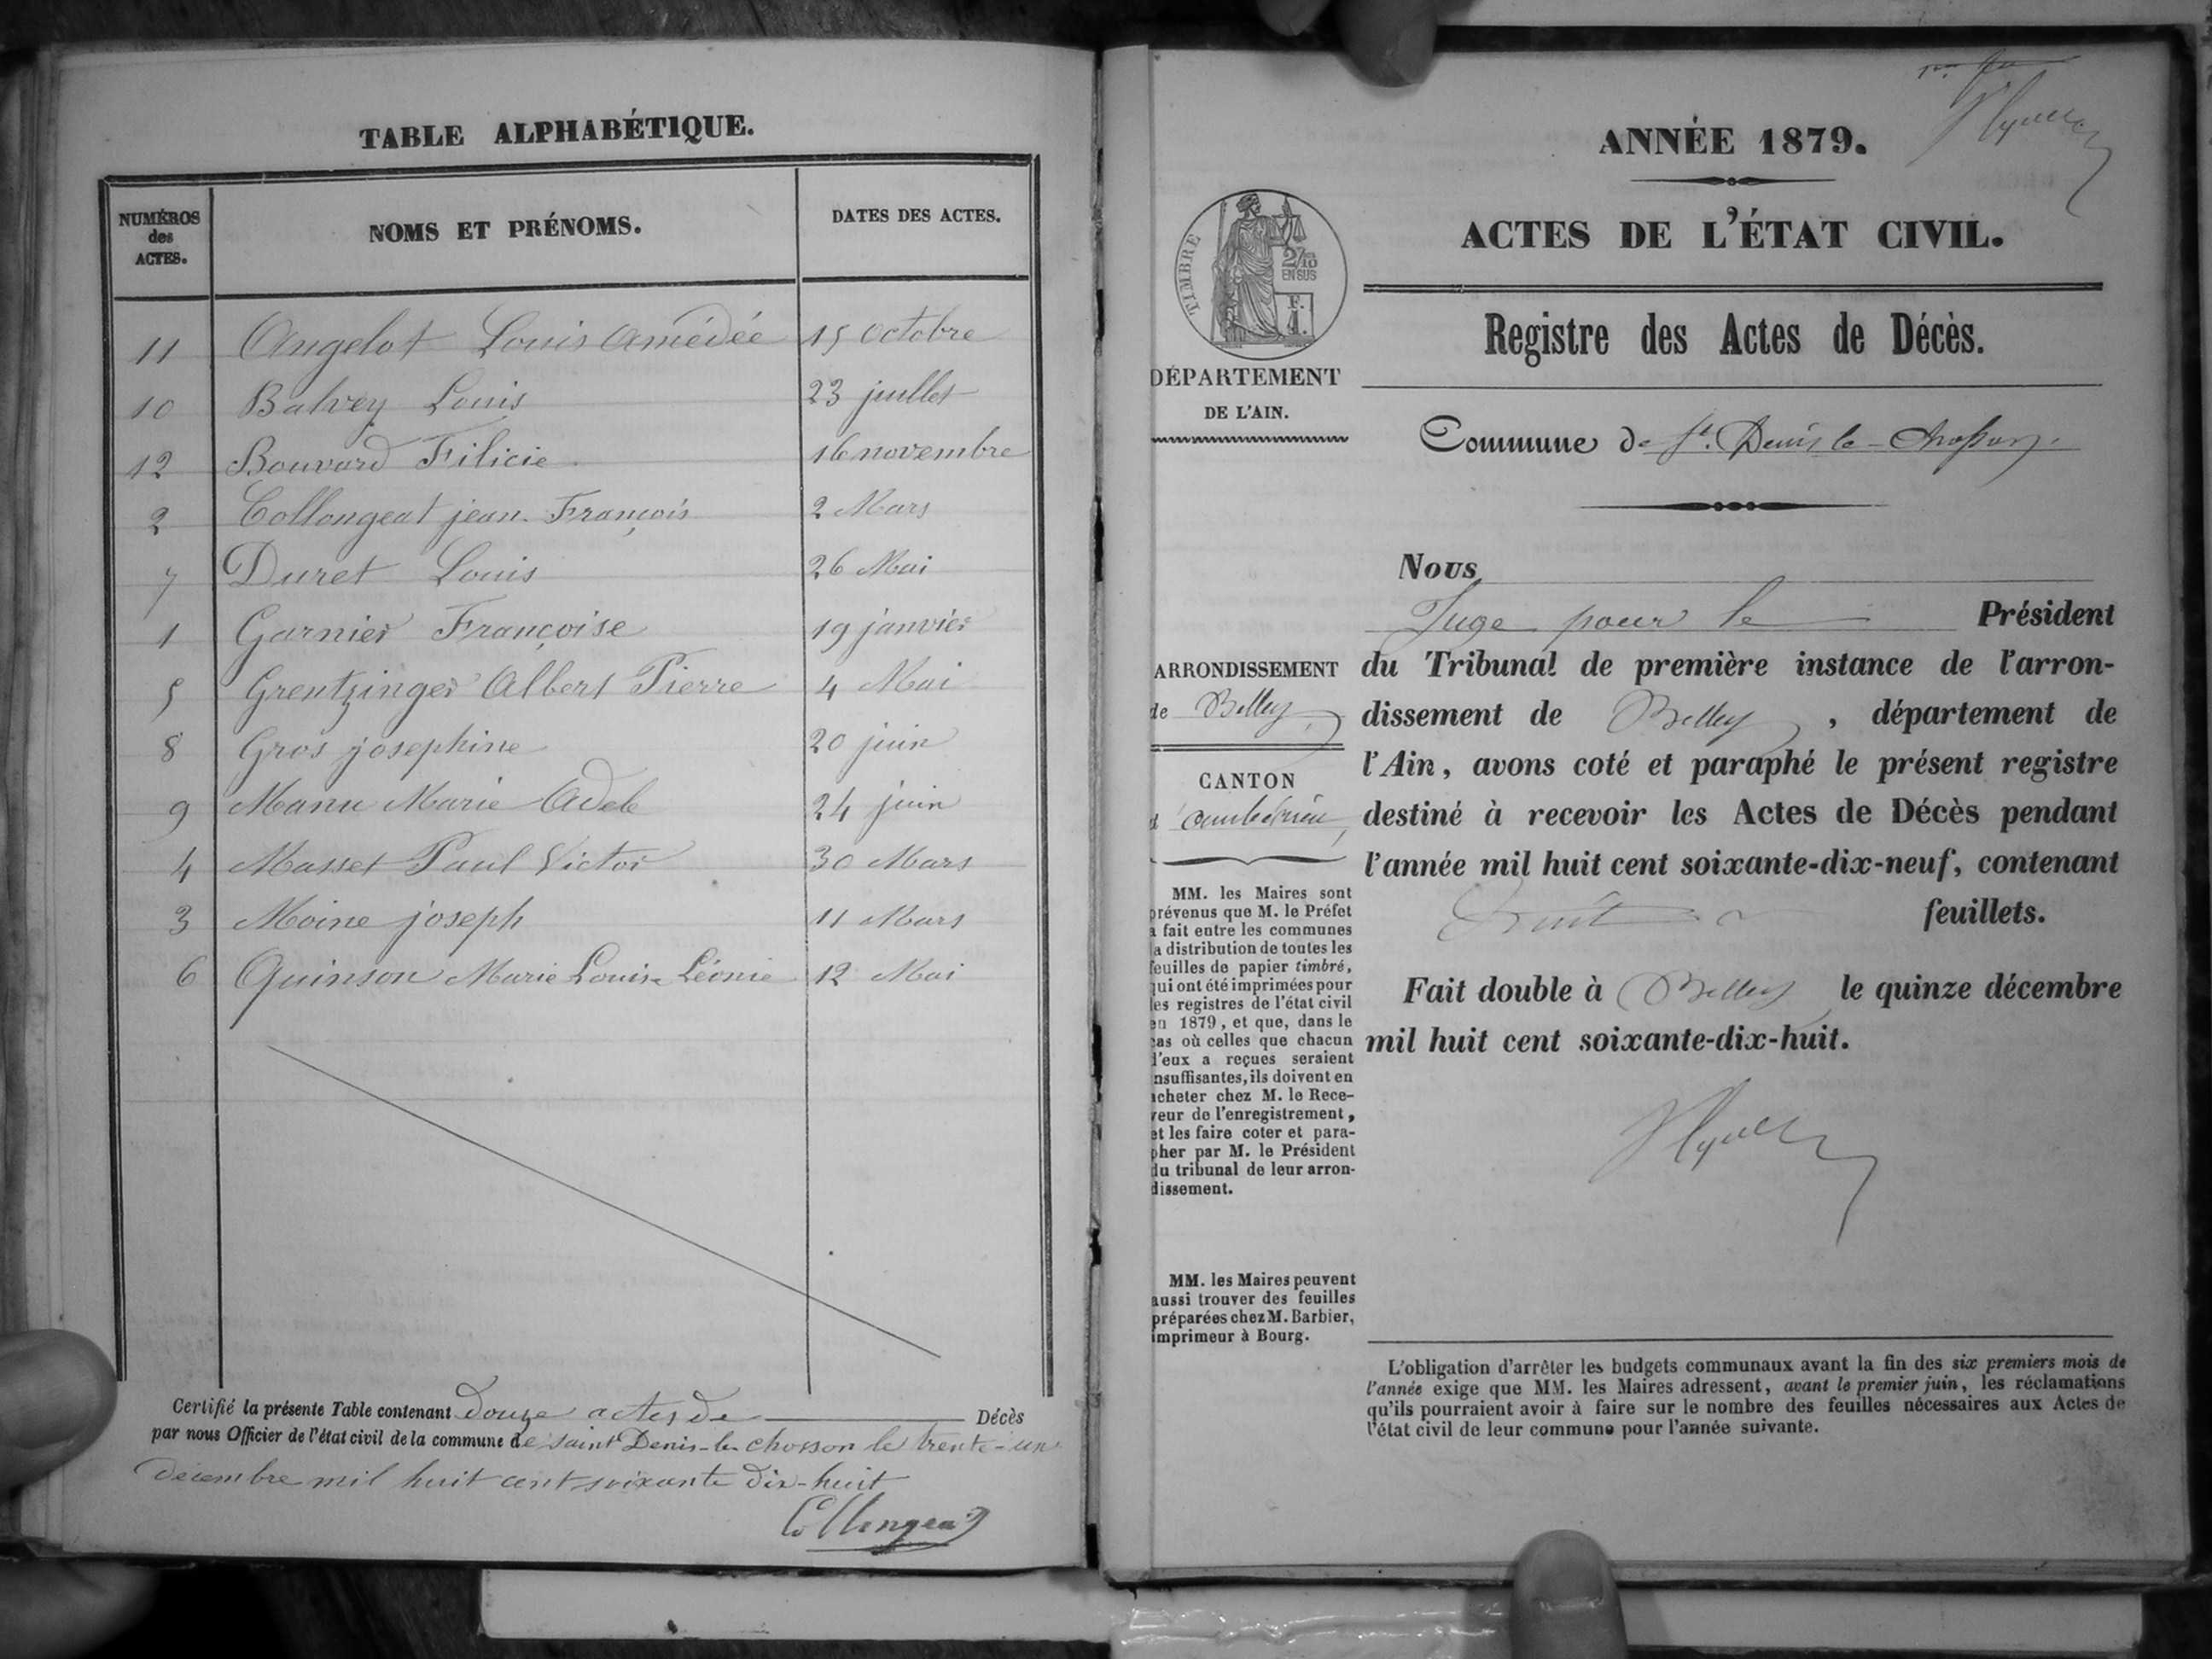 TABLE ALPHABÉTIQUE.
NUMÉROS
des
ACTES.
NOMS ET PRÉNOMS.
DATES DES ACTES.
11 Angelot Louis Amédée 15 Octobre
10 Balvey Louis 23 juillet
12 Bouvard Filicie 16 novembre
2 Collongeat jean François 2 Mars
7 Duret Louis 26 Mai
1 Garnier Françoise 19 janvier
5 Grentzinger Albert Pierre 4 Mai
8 Gros josephine 20 juin
9 Manu Marie Adele 24 juin
4 Masset Paul Victor 30 Mars
3 Moine joseph 11 Mars
6 Quinson Marie Louise Léonie 12 Mai
Certifié la présente Table contenant douze actes de Décès
par nous Officier de l'état civil de la commune de saint Denis-le-chosson le trente-un
décembre mil huit cent soixante dix-huit
Collongeat
ANNÉE 1879.
ACTES DE L'ÉTAT CIVIL.
TIMBRE
2/10
EN SUS
F.
1.
Registre des Actes de Décès.
DÉPARTEMENT
DE L'AIN.
Commune de St. Denis le-Chosson.
Nous
Juge pour le Président
du Tribunal de première instance de l'arron-
dissement de Belley, département de
l'Ain, avons coté et paraphé le présent registre
destiné à recevoir les Actes de Décès pendant
l'année mil huit cent soixante-dix-neuf, contenant
huit feuillets.
Fait double à Belley le quinze décembre
mil huit cent soixante-dix-huit.
ARRONDISSEMENT
de Belley
CANTON
d'ambérieu
MM. les Maires sont
prévenus que M. le Préfet
a fait entre les communes
la distribution de toutes les
feuilles de papier timbré,
qui ont été imprimées pour
les registres de l'état civil
en 1879, et que, dans le
cas où celles que chacun
d'eux a reçues seraient
insuffisantes, ils doivent en
acheter chez M. le Rece-
veur de l'enregistrement,
et les faire coter et para-
pher par M. le Président
du tribunal de leur arron-
dissement.
MM. les Maires peuvent
aussi trouver des feuilles
préparées chez M. Barbier,
imprimeur à Bourg.
L'obligation d'arrêter les budgets communaux avant la fin des six premiers mois de
l'année exige que MM. les Maires adressent, avant le premier juin, les réclamations
qu'ils pourraient avoir à faire sur le nombre des feuilles nécessaires aux Actes de
l'état civil de leur commune pour l'année suivante.